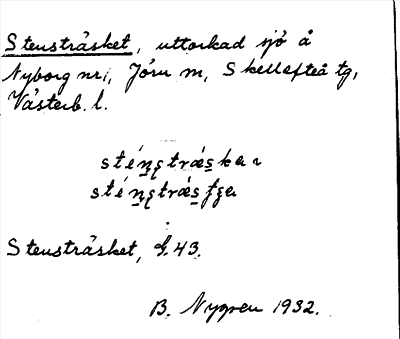 Stensträsket, uttorkad sjö å
Nyborg nr 1, Jörn sn, Skellefteå tg,
Västerb. l.
Stensträsket, G.43.
B. Nygren 1932.